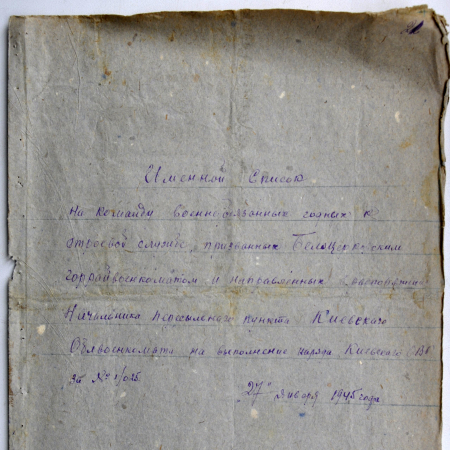 Именной Список
на команду военнообязанных годных к
строевой службе, призванных Белоцерковским
горрайвоенкоматом и направленных в распоряжение
Начальника Пересыльного пункта Киевского
Облвоенкомата на выполнение наряда Киевского
за № 1/025.
"27" января 1945 года